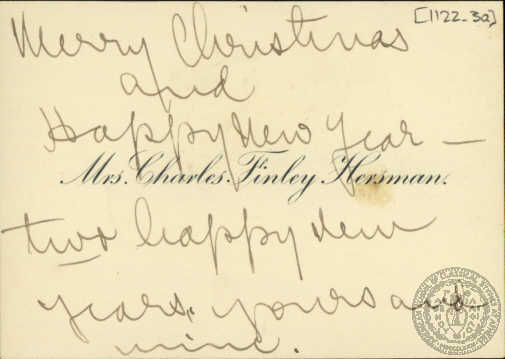 [1122-3a]
Merry Christmas
and
Happy New Year —
Mrs. Charles. Finley Hersman.
two happy New
years, yours and
mine.